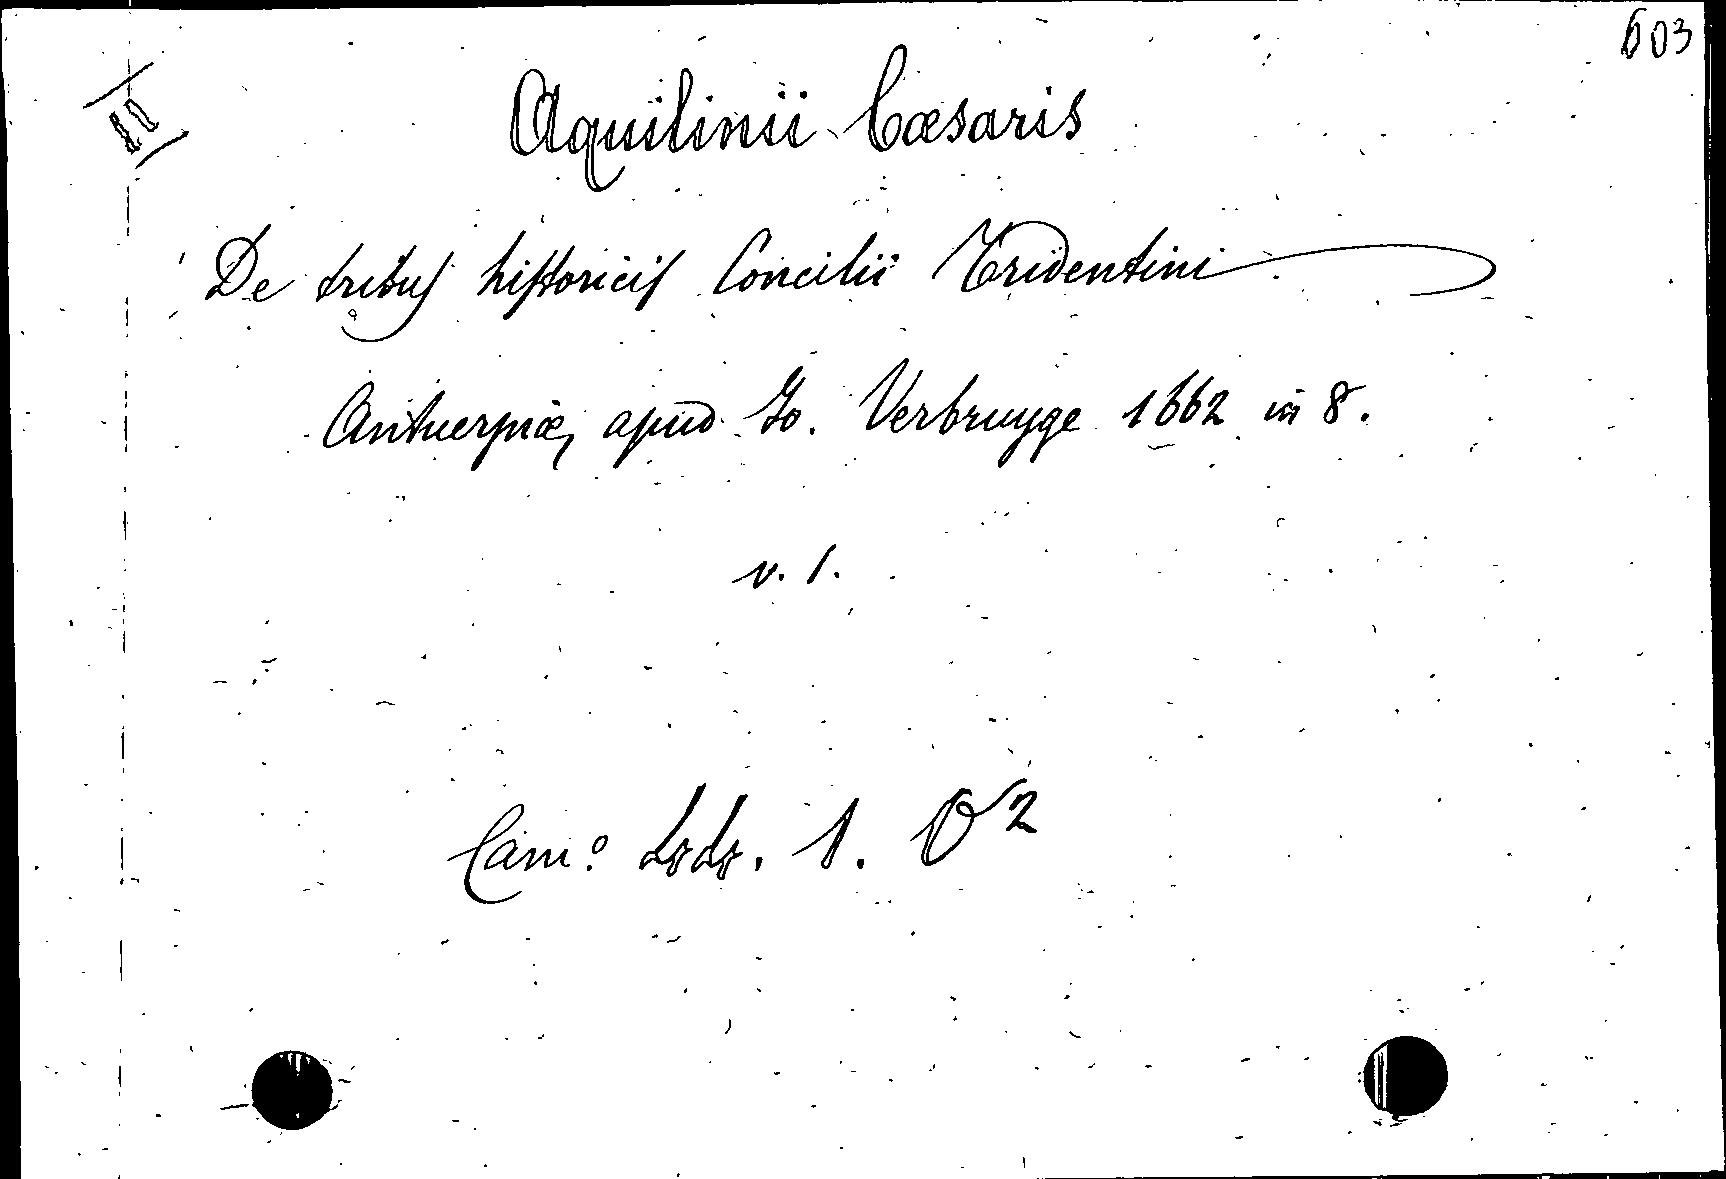 603
II
Aquilinii Cæsaris
De tribus historicis Concilii Tridentini
Antuerpiæ, apud Io. Verbruyge 1662 in 8.
v. 1.
Cam.º 1. O 2